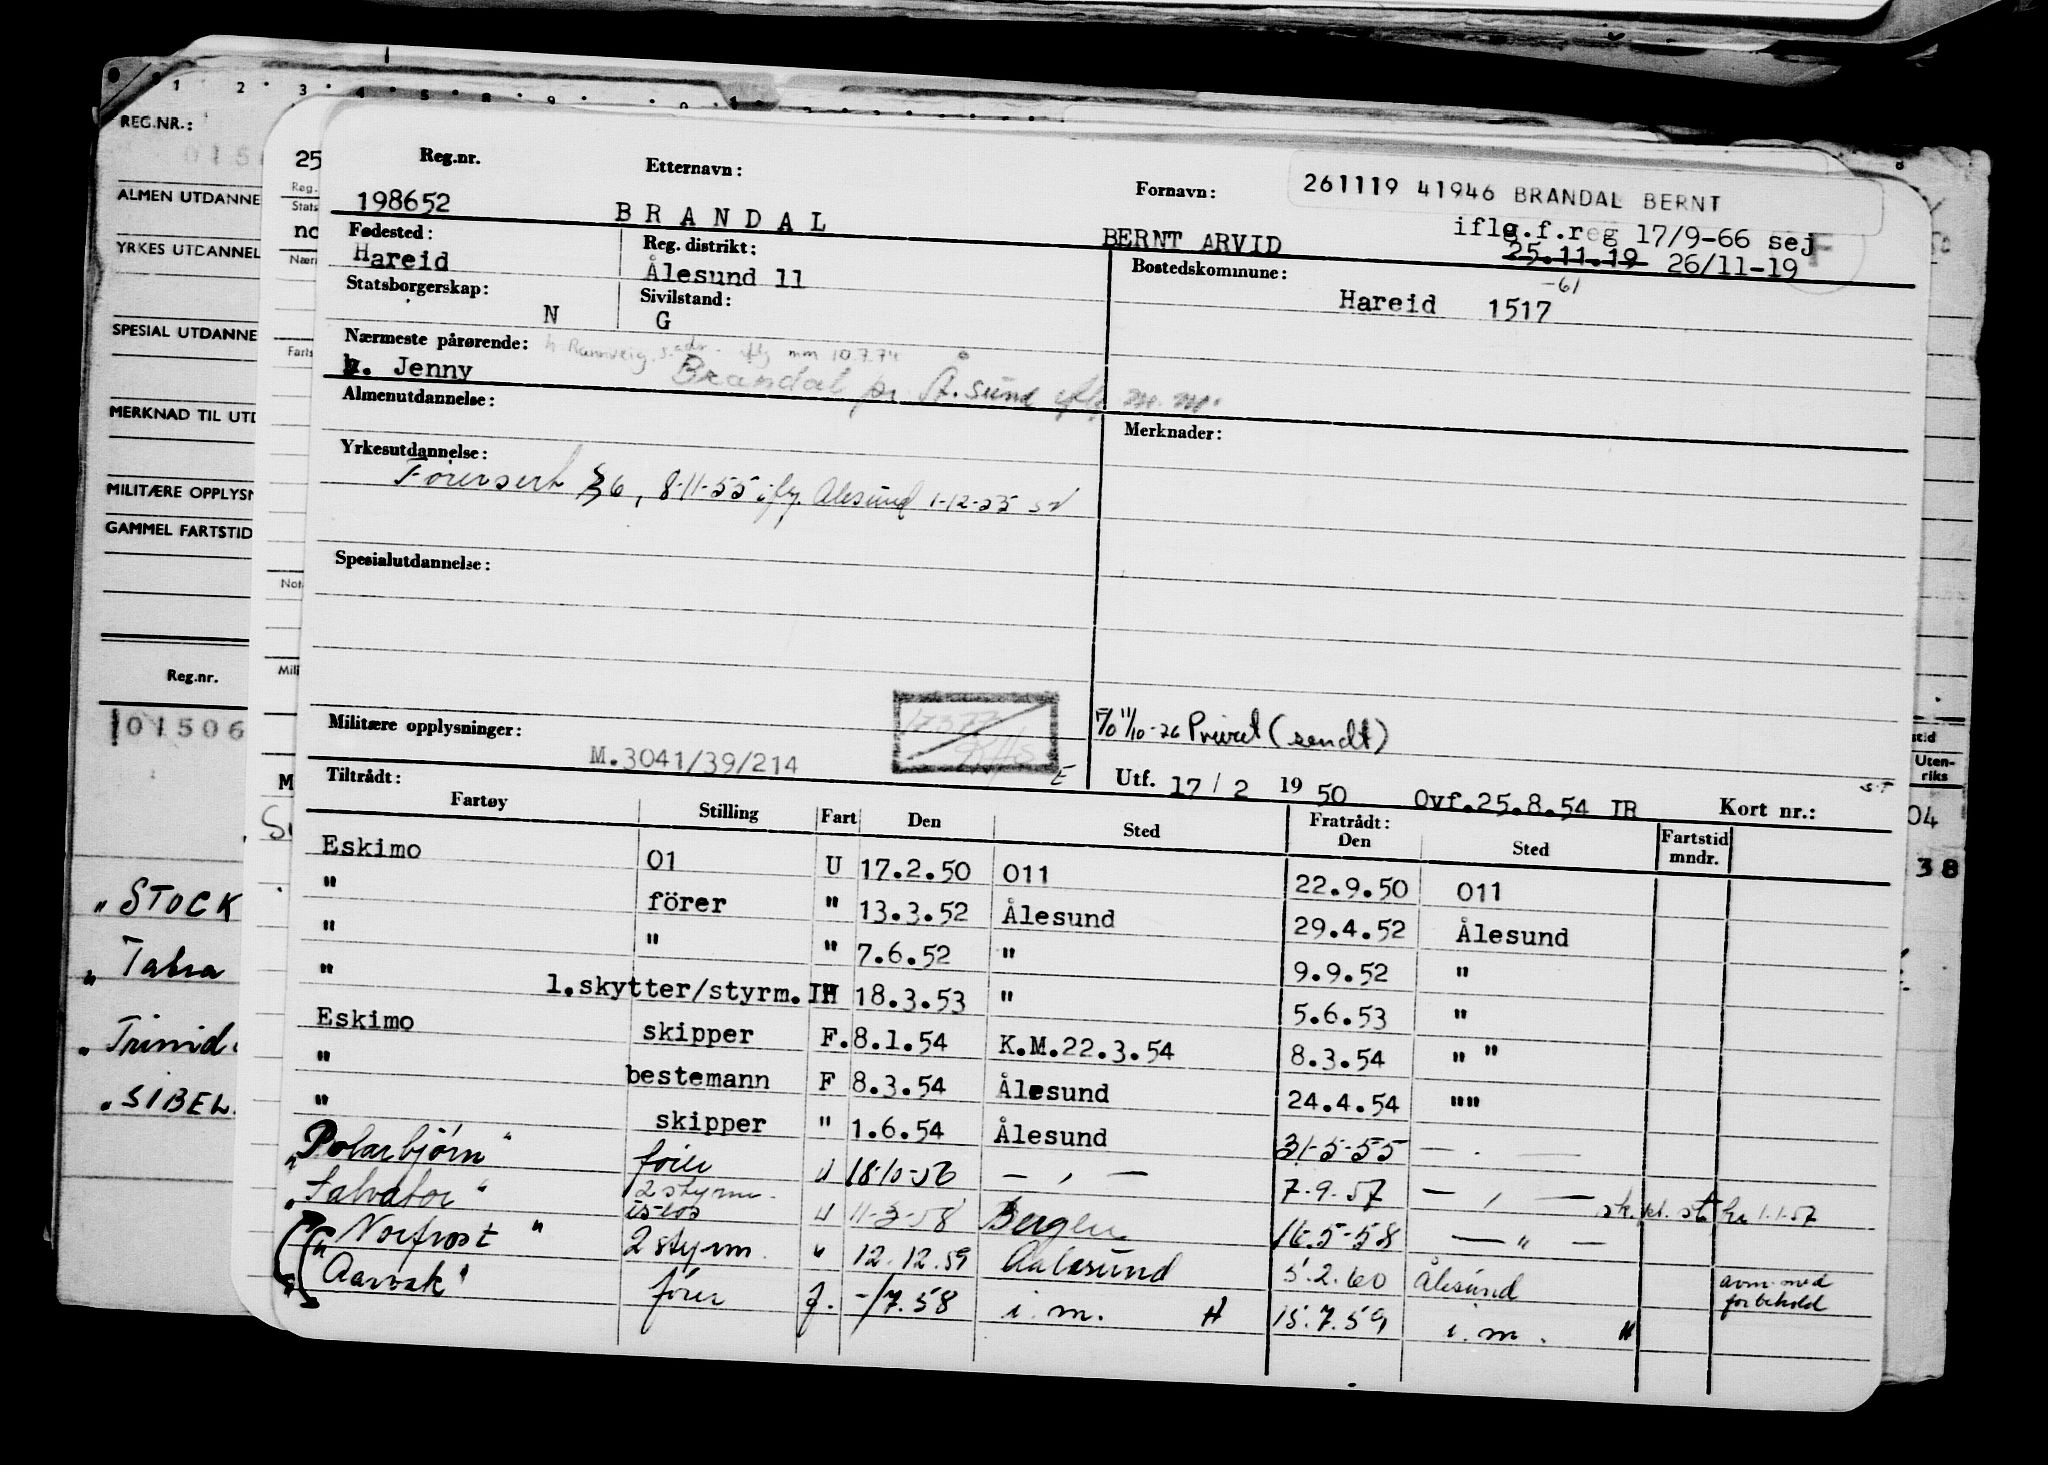 1 2 3 4 5 8 9
REG.NR.:
ALMEN UTDANNE
YRKES UTDANNEL
SPESIAL UTDANNE
MERKNAD TIL UTD
MILITÆRE OPPLYSN
GAMMEL FARTSTID
Reg.nr.
01506
„STOCK
„Tabra
„Trinid.
„SIBEL.
25
Reg.
Stats
no
Farts
Mili
Reg.nr. Etternavn: Fornavn: 261119 41946 BRANDAL BERNT
198652 BRANDAL BERNT ARVID iflg.f.reg 17/9-66 sej
25.11.19 26/11-19 F
Fødested: Reg. distrikt: Bostedskommune:
Hareid Ålesund 11 -61
Statsborgerskap: Sivilstand: Hareid 1517
N G
Nærmeste pårørende: h Rannveig, s.adr. iflg mm 10.7.74
h. Jenny Brandal pr Å.sund iflg m.m.
Almenutdannelse: Merknader:
Yrkesutdannelse:
Förersert 6, 8-11-55 ifg. Alesund 1-12-55
Spesialutdannelse:
Militære opplysninger: F/0 11/10-26 Privat (sendt)
M.3041/39/214
Tiltrådt: Utf. 17/2 1950 Ovf.25.8.54 IR Kort nr.:
Fartøy Stilling Fart Den Sted Fratrådt: Den Sted Fartstid mndr.
Eskimo 01 U 17.2.50 011 22.9.50 011
" förer " 13.3.52 Ålesund 29.4.52 Ålesund
" " " 7.6.52 " 9.9.52 "
" 1.skytter/styrm. 18.3.53 " 5.6.53 "
Eskimo skipper F. 8.1.54 K.M.22.3.54 8.3.54 " "
" bestemann F 8.3.54 Ålesund 24.4.54 ""
" skipper " 1.6.54 Ålesund 31-5-55 — . —
„Polarbjörn" förer U 18-10-56 — , — 7.9.57 — , —
„Salvator" 2 styrm. is-los U 11-3-58 Bergen 16.5-58 — " — 1.1.57
„Norfrost" 2 styrm. " 12.12.59 Aalesund 5.2.60 Ålesund anm. med forbehold
„Aarvak" förer f. -/7.58 i.m. H 15.7.59 i.m. H
stid
Uten-
riks
04
38